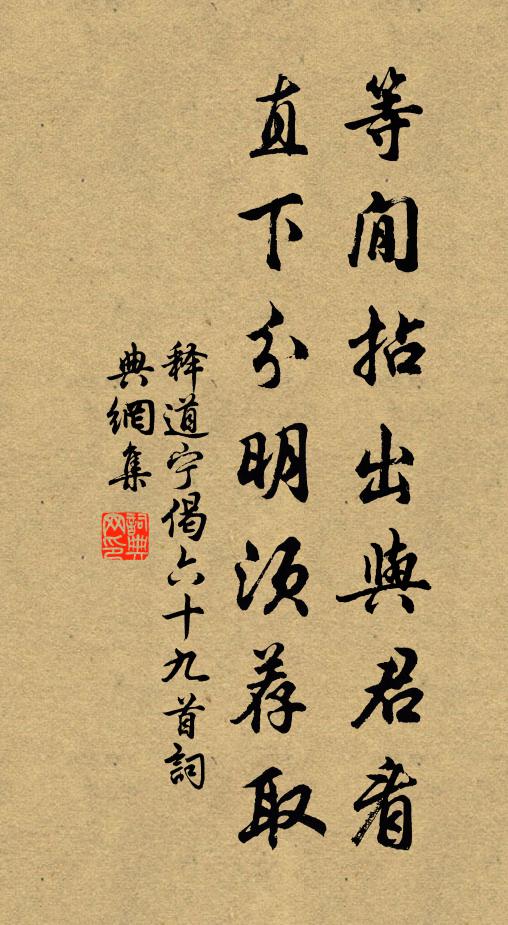 等閒拈出與君看
直下分明須荐取
释道宁偈六十九首詞
典網集
詞典網印